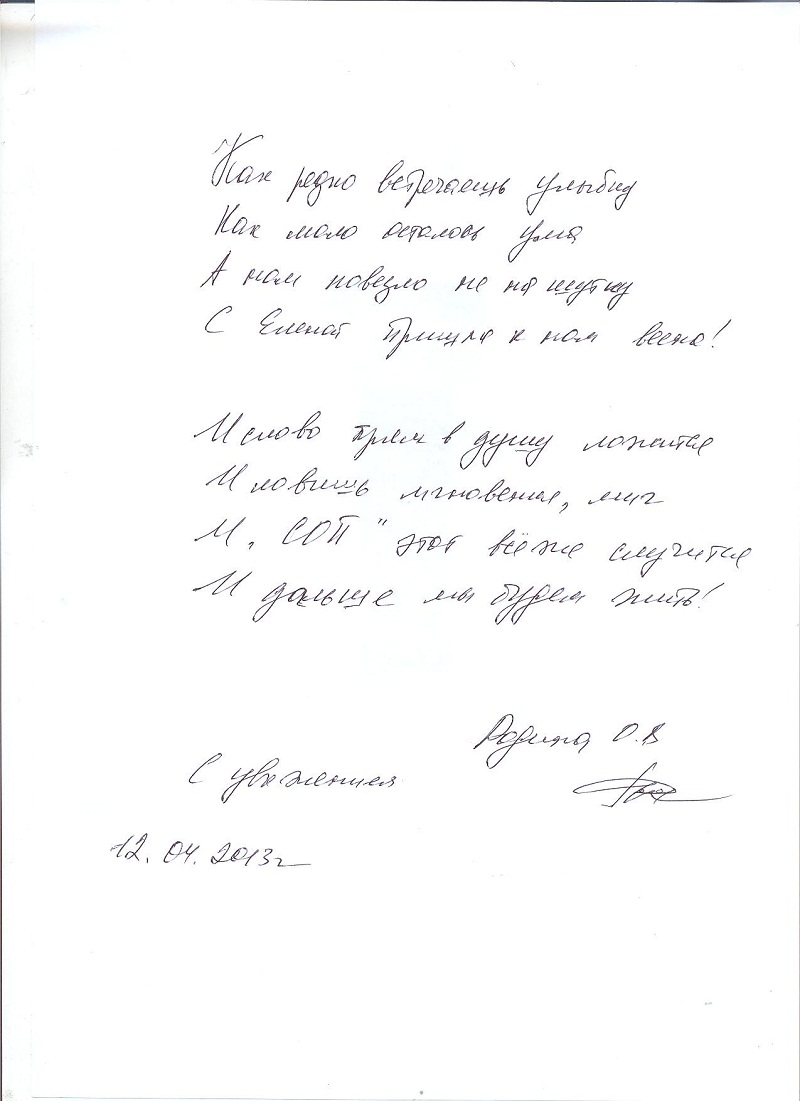 Как редко встречаешь улыбку
Как мало осталось ума
А нам повезло не на шутку
С Еленой пришла к нам весна!
И слово прям в душу ложится
И ловишь мгновения, миг
И „СОП" этот всё же случится
И дальше мы будем жить!
Родина О.В
С уважением
12.04.2013г